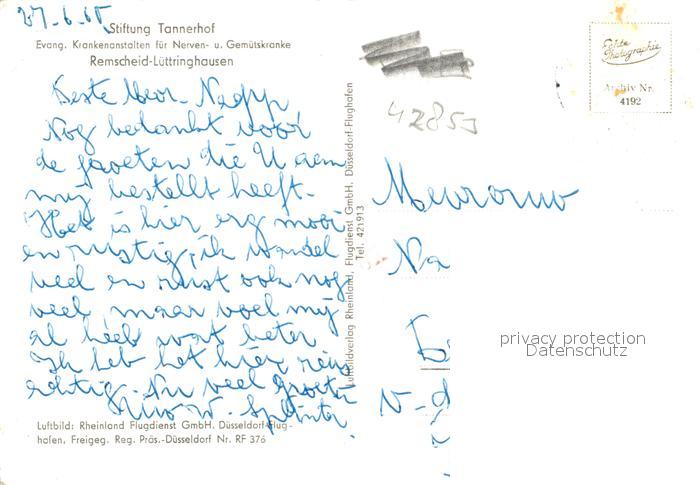 27-6-65
Stiftung Tannerhof
Evang. Krankenanstalten für Nerven- u. Gemütskranke
Remscheid-Lüttringhausen
Beste Mevr.
Nog bedankt voor
de groeten die U aan
mij bestellt heeft.
Het is hier erg mooi
en rustig, ik wandel
veel en rust ook nog
veel maar voel mij
al heel wat beter.
Ik heb het hier
Nu veel groeten
W. Splinter.
Luftbild: Rheinland Flugdienst GmbH. Düsseldorf-Flug-
hafen, Freigeg. Reg. Präs.-Düsseldorf Nr. RF 376
Luftbildverlag Rheinland, Flugdienst GmbH. Düsseldorf-Flughafen
Tel. 421913
Echte
Photographie
Archiv Nr.
4192
Mevrouw
Na
privacy protection
Datenschutz